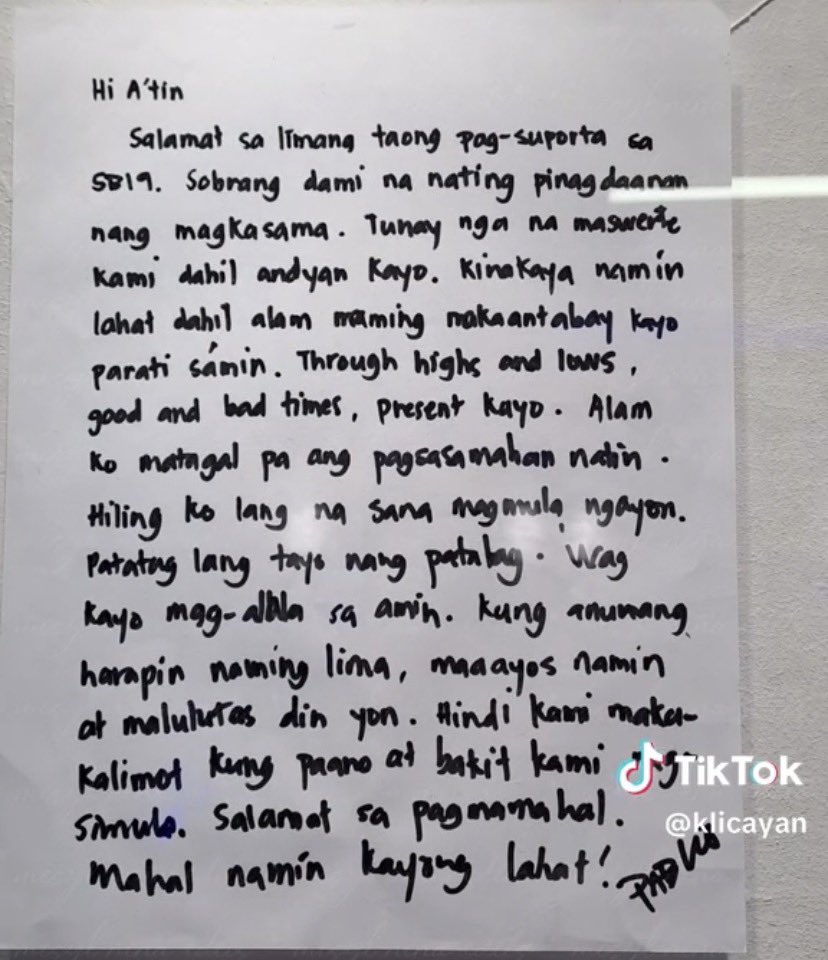 Hi A'tin
Salamat sa limang taong pag-suporta sa
SB19. Sobrang dami na nating pinagdaanan
nang magkasama. Tunay nga na maswerte
kami dahil andyan kayo. Kinakaya namin
lahat dahil alam naming nakaantabay kayo
parati sámin. Through highs and lows,
good and bad times, present kayo. Alam
ko matagal pa ang pagsasamahan natin.
Hiling ko lang na sana magmula ngayon.
Patatag lang tayo nang patatag. 'Wag
kayo mag-alala sa amin. Kung anumang
harapin naming lima, maaayos namin
at malulutas din yon. Hindi kami maka-
kalimot kung paano at bakit kami
simula. Salamat sa pagmamahal.
Mahal namin kayong lahat!
PABLO
TikTok
@klicayan